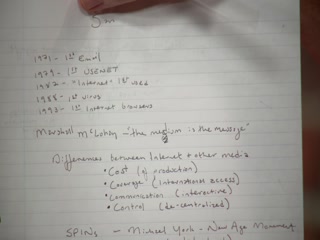 1971 - 1st Email
1979 - 1st USENET
1982 - "Internet" 1st used
1988 - 1st virus
1993 - 1st Internet browsers
Marshall McLuhan - "the medium is the message"
Differences between Internet + other media
• Cost (of production)
• Coverage (International access)
• Communication (interactive)
• Control (de-centralised)
SPINs - Michael York - New Age Movement